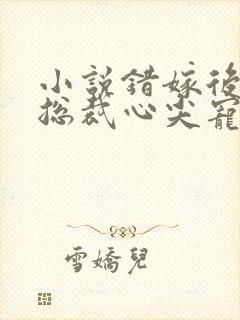 小說錯嫁後
總裁心尖寵
雪嬌兒